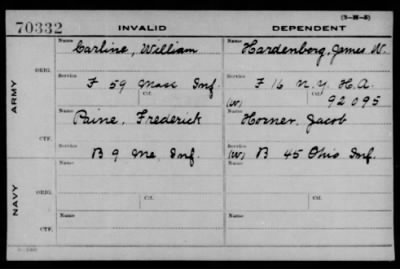 (3-H-5)
70332 INVALID DEPENDENT
Name Name
Carline, William Hardenberg, James W.
ORIG.
Service Service
F 59 Mass Inf. F 16 N.Y. H.A.
Ctf. Ctf.
(W) 92095
ARMY
Name Name
Paine, Frederick Horner, Jacob
CTF.
Service Service
B 9 Me. Inf. (W) B 45 Ohio Inf.
Ctf. Ctf.
ORIG.
NAVY
Name Name
CTF.